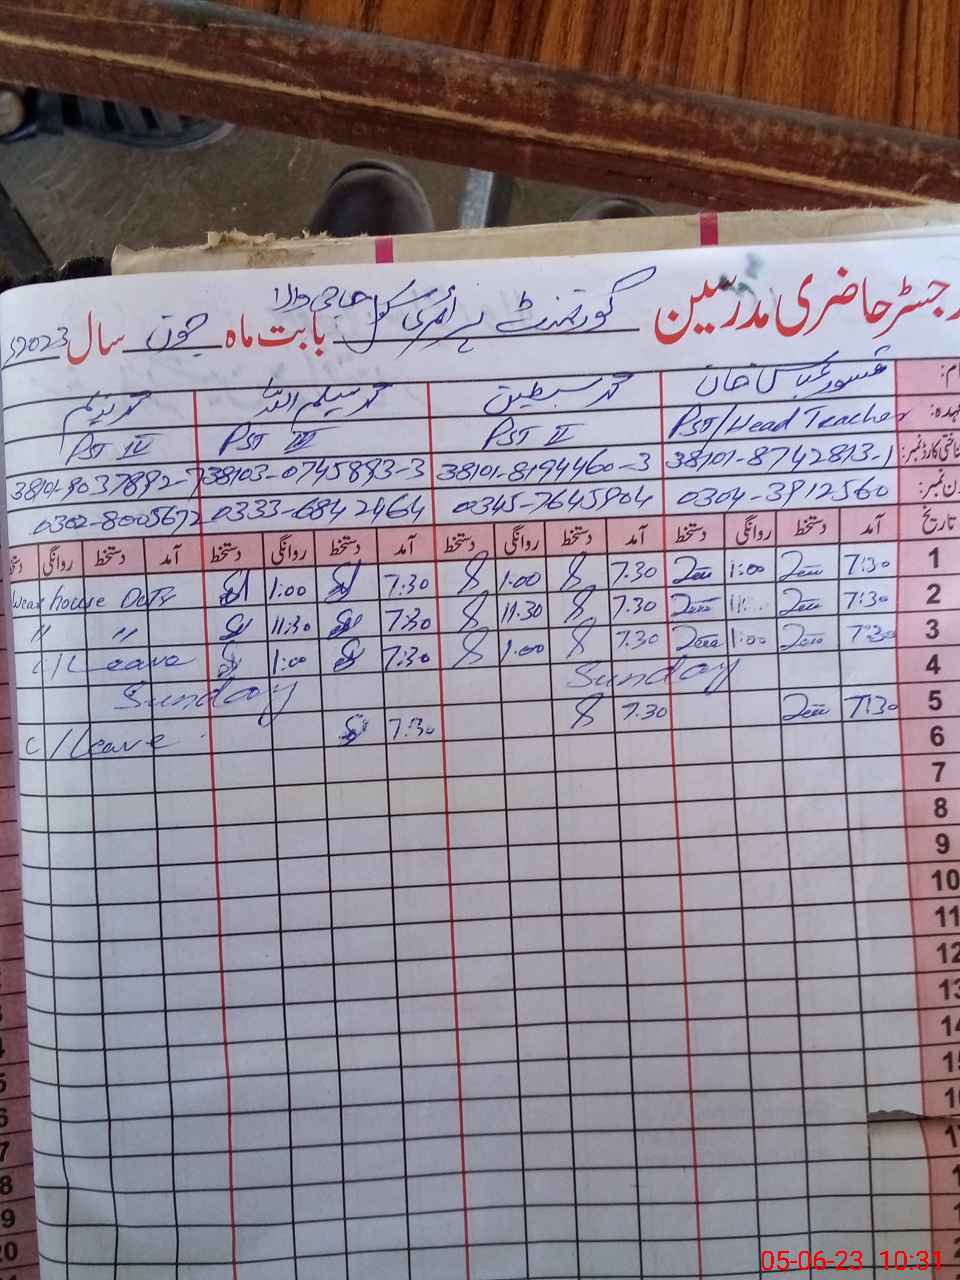 رجسٹر حاضری مدرسین گورنمنٹ پرائمری سکول حاجی والا بابت ماہ جون سال 2023ء
نام: قسور عباس خان محمد سبطین محمد سلیم اللہ محمد ندیم
عہدہ: PST/Head Teacher PST II PST III PST IV
شناختی کارڈ نمبر: 38101-8742813-1 38101-8194460-3 38103-0745893-3 38101-9037892-7
فون نمبر: 0304-3912560 0345-7645904 0333-6842464 0302-8005672
تاریخ آمد دستخط روانگی دستخط آمد دستخط روانگی دستخط آمد دستخط روانگی دستخط آمد دستخط روانگی دستخط
1 7:30 1:00 7.30 1.00 7.30 1:00 house Duty
2 7:30 11: 7.30 11.30 7:30 11:30 〃 〃
3 7:30 1:00 7.30 1.00 7:30 1:00 C/Leave
4 Sunday Sunday
5 7:30 7.30 7:30 C/Leave
6
7
8
9
10
11
12
13
14
15
16
17
05-06-23 10:31